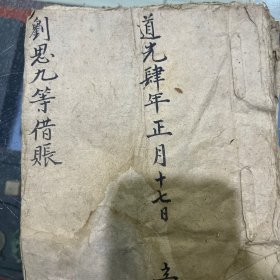 道光肆年正月十七日 立
劉思九等借賬